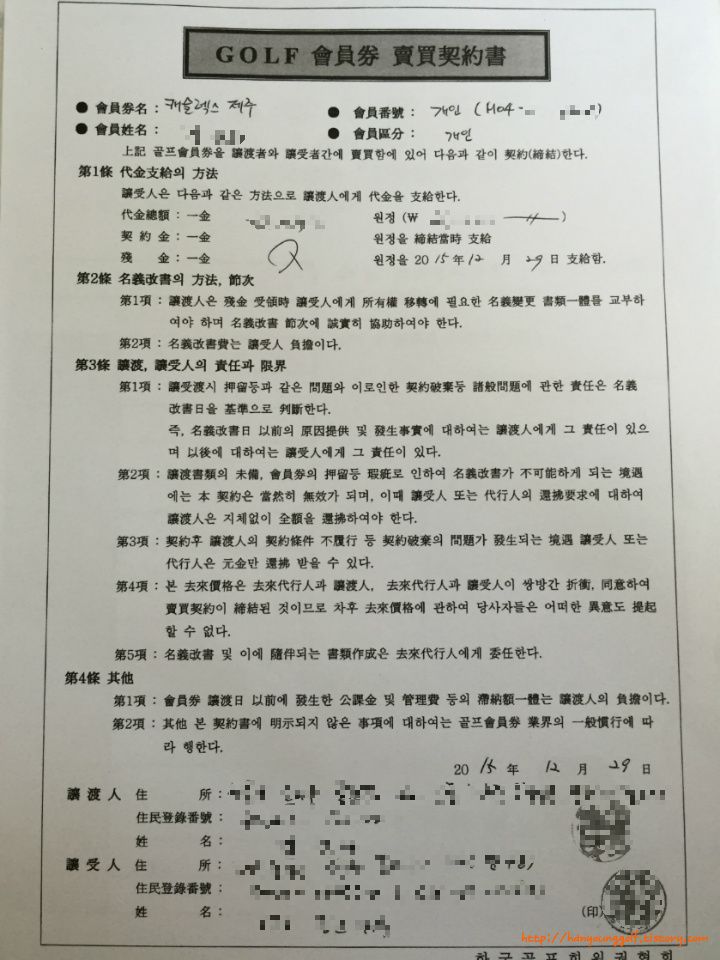 GOLF 會員券 賣買契約書
● 會員券名 : 캐슬렉스 제주 ● 會員番號 : 개인 (H04-
● 會員姓名 : ● 會員區分 : 개인
上記 골프會員券을 讓渡者와 讓受者간에 賣買함에 있어 다음과 같이 契約(締結)한다.
第1條 代金支給의 方法
讓受人은 다음과 같은 方法으로 讓渡人에게 代金을 支給한다.
代金總額 : 一金 원정 (₩ )
契 約 金 : 一金 원정을 締結當時 支給
殘 金 : 一金 원정을 2015年 12 月 29 日 支給함.
第2條 名義改書의 方法, 節次
第1項 : 讓渡人은 殘金 受領時 讓受人에게 所有權 移轉에 필요한 名義變更 書類一體를 교부하
여야 하며 名義改書 節次에 誠實히 協助하여야 한다.
第2項 : 名義改書費는 讓受人 負擔이다.
第3條 讓渡, 讓受人의 責任과 限界
第1項 : 讓受渡시 押留등과 같은 問題와 이로인한 契約破棄등 諸般問題에 관한 責任은 名義
改書日을 基準으로 判斷한다.
즉, 名義改書日 以前의 原因提供 및 發生事實에 대하여는 讓渡人에게 그 責任이 있으
며 以後에 대하여는 讓受人에게 그 責任이 있다.
第2項 : 讓渡書類의 未備, 會員券의 押留등 瑕疵로 인하여 名義改書가 不可能하게 되는 境遇
에는 本 契約은 當然히 無效가 되며, 이때 讓受人 또는 代行人의 還拂要求에 대하여
讓渡人은 지체없이 全額을 還拂하여야 한다.
第3項 : 契約후 讓渡人의 契約條件 不履行 등 契約破棄의 問題가 發生되는 境遇 讓受人 또는
代行人은 元金만 還拂 받을 수 있다.
第4項 : 본 去來價格은 去來代行人과 讓渡人, 去來代行人과 讓受人이 쌍방간 折衝, 同意하여
賣買契約이 締結된 것이므로 차후 去來價格에 관하여 당사자들은 어떠한 異意도 提起
할 수 없다.
第5項 : 名義改書 및 이에 隨伴되는 書類作成은 去來代行人에게 委任한다.
第4條 其他
第1項 : 會員券 讓渡日 以前에 發生한 公課金 및 管理費 등의 滯納額一體는 讓渡人의 負擔이다.
第2項 : 其他 본 契約書에 明示되지 않은 事項에 대하여는 골프會員券 業界의 一般慣行에 따
라 행한다.
2015 年 12 月 29 日
讓 渡 人 住 所 :
住民登錄番號 :
姓 名 :
讓 受 人 住 所 :
住民登錄番號 :
姓 名 : (印)
http://hanyounggolf.tistory.com
한국골프회원권협회